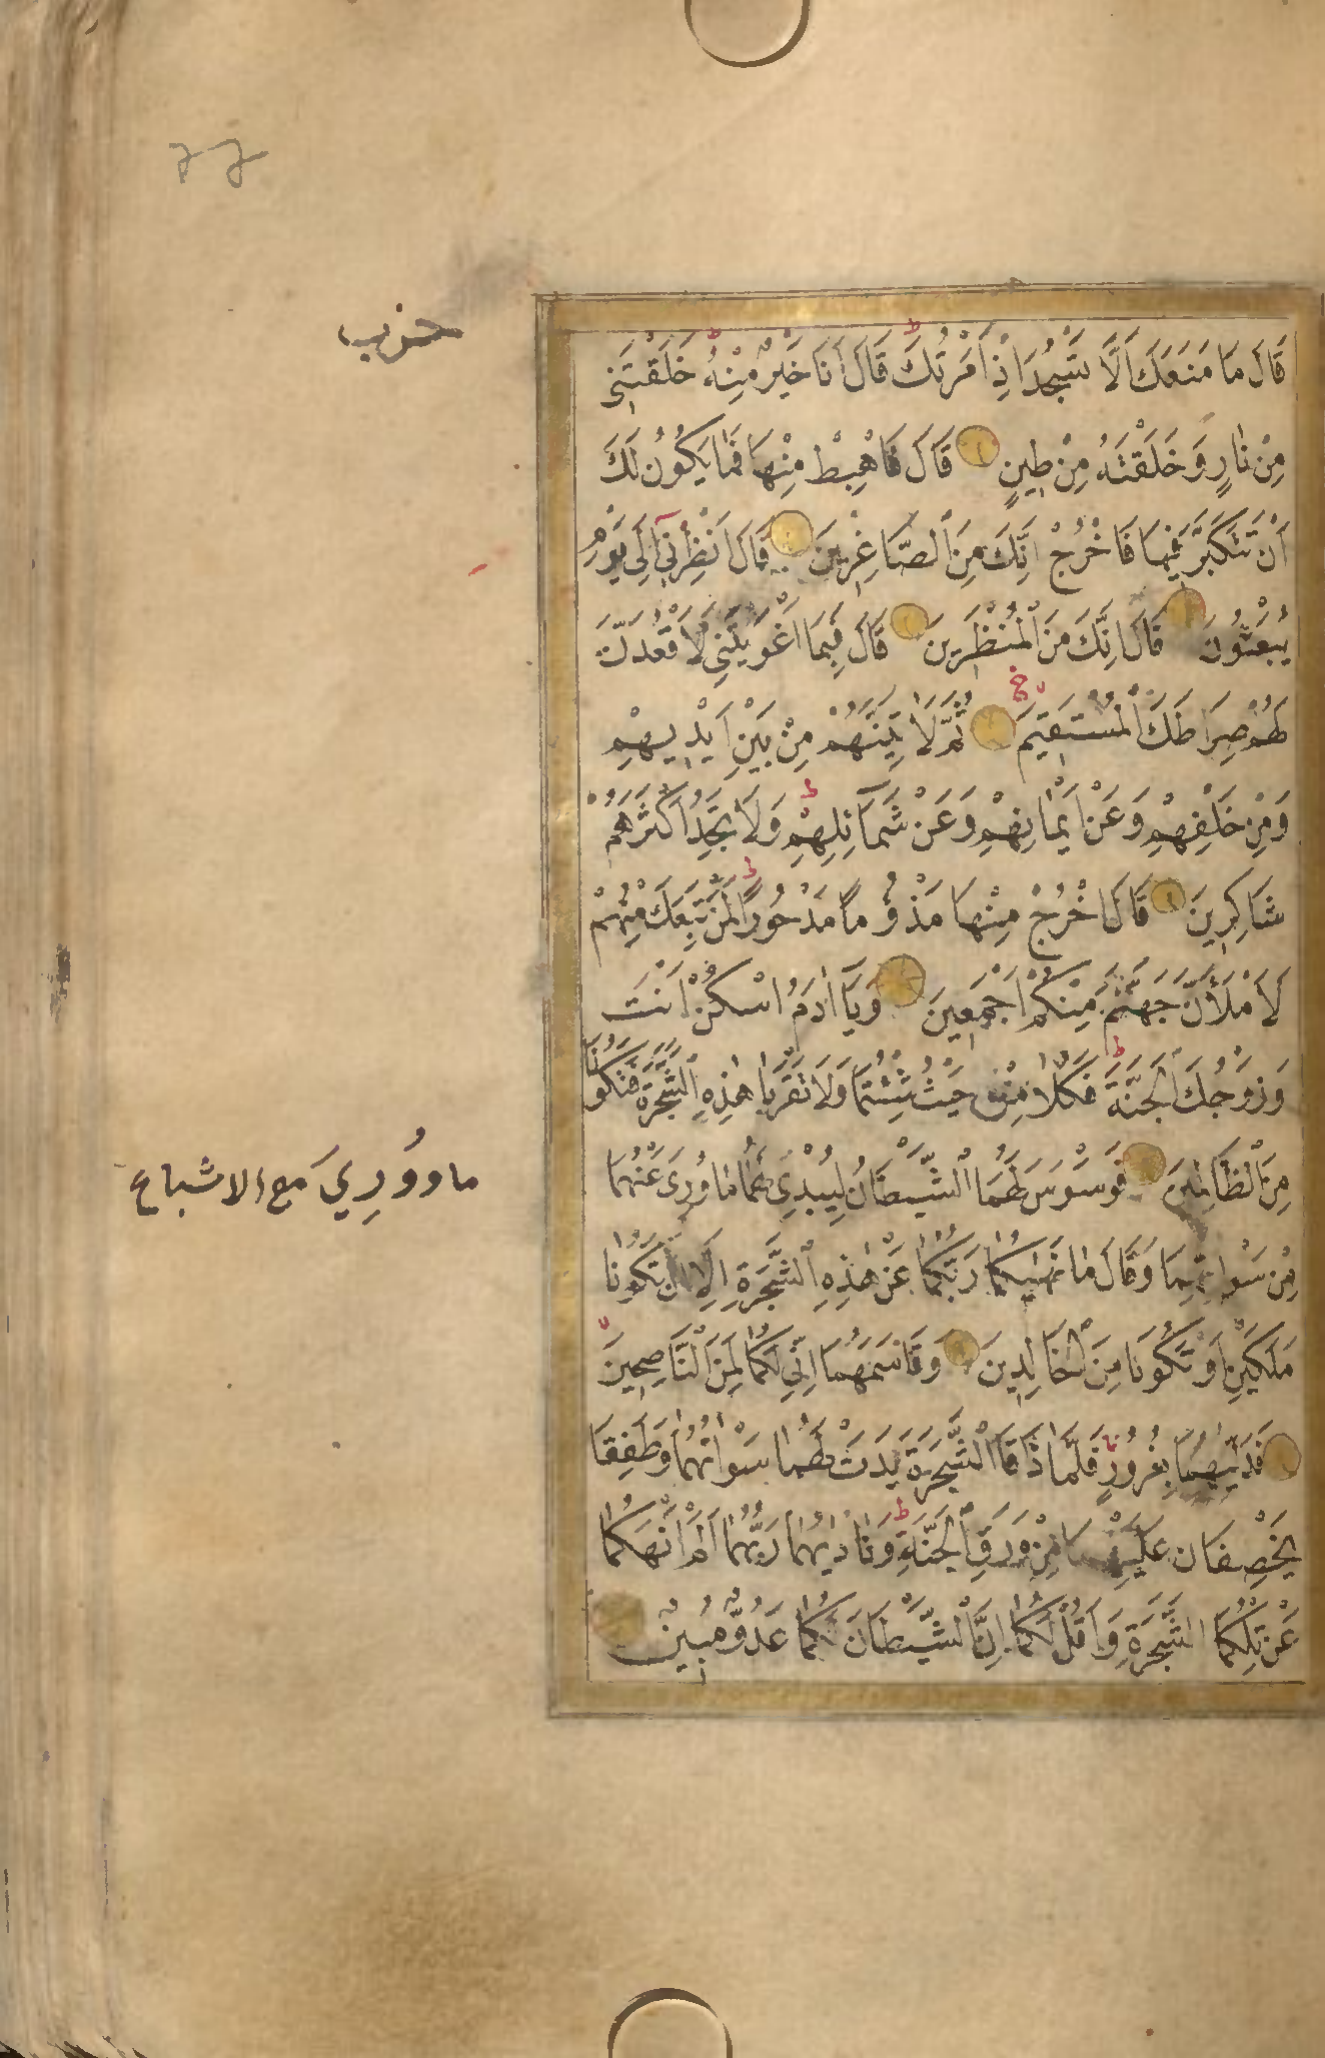 حزب
قَالَ مَا مَنَعَكَ اَلَّا تَسْجُدَ اِذْ اَمَرْتُكَ قَالَ اَنَا خَيْرٌ مِنْهُ خَلَقْتَنِى
مِنْ نَارٍ وَخَلَقْتَهُ مِنْ طِينٍ قَالَ فَاهْبِطْ مِنْهَا فَمَا يَكُونُ لَكَ
اَنْ تَتَكَبَّرَ فِيهَا فَاخْرُجْ اِنَّكَ مِنَ الصَّاغِرِينَ قَالَ اَنْظِرْنِى اِلَى يَوْمِ
يُبْعَثُونَ قَالَ اِنَّكَ مِنَ الْمُنْظَرِينَ قَالَ فَبِمَا اَغْوَيْتَنِى لَاَقْعُدَنَّ
لَهُمْ صِرَاطَكَ الْمُسْتَقِيمَ ثُمَّ لَاٰتِيَنَّهُمْ مِنْ بَيْنِ اَيْدِيهِمْ
وَمِنْ خَلْفِهِمْ وَعَنْ اَيْمَانِهِمْ وَعَنْ شَمَائِلِهِمْ وَلَا تَجِدُ اَكْثَرَهُمْ
شَاكِرِينَ قَالَ اخْرُجْ مِنْهَا مَذْؤُمًا مَدْحُورًا لَمَنْ تَبِعَكَ مِنْهُمْ
لَاَمْلَأَنَّ جَهَنَّمَ مِنْكُمْ اَجْمَعِينَ وَيَا اٰدَمُ اسْكُنْ اَنْتَ
وَزَوْجُكَ الْجَنَّةَ فَكُلَا مِنْ حَيْثُ شِئْتُمَا وَلَا تَقْرَبَا هٰذِهِ الشَّجَرَةَ فَتَكُونَا
مِنَ الظَّالِمِينَ فَوَسْوَسَ لَهُمَا الشَّيْطَانُ لِيُبْدِىَ لَهُمَا مَا وُرِىَ عَنْهُمَا
ما وُورِيَ مع الاشباع
مِنْ سَوْاٰتِهِمَا وَقَالَ مَا نَهٰيكُمَا رَبُّكُمَا عَنْ هٰذِهِ الشَّجَرَةِ اِلَّا اَنْ تَكُونَا
مَلَكَيْنِ اَوْ تَكُونَا مِنَ الْخَالِدِينَ وَقَاسَمَهُمَا اِنِّى لَكُمَا لَمِنَ النَّاصِحِينَ
فَدَلّٰيهُمَا بِغُرُورٍ فَلَمَّا ذَاقَا الشَّجَرَةَ بَدَتْ لَهُمَا سَوْاٰتُهُمَا وَطَفِقَا
يَخْصِفَانِ عَلَيْهِمَا مِنْ وَرَقِ الْجَنَّةِ وَنَادٰيهُمَا رَبُّهُمَا اَلَمْ اَنْهَكُمَا
عَنْ تِلْكُمَا الشَّجَرَةِ وَاَقُلْ لَكُمَا اِنَّ الشَّيْطَانَ لَكُمَا عَدُوٌّ مُبِينٌ